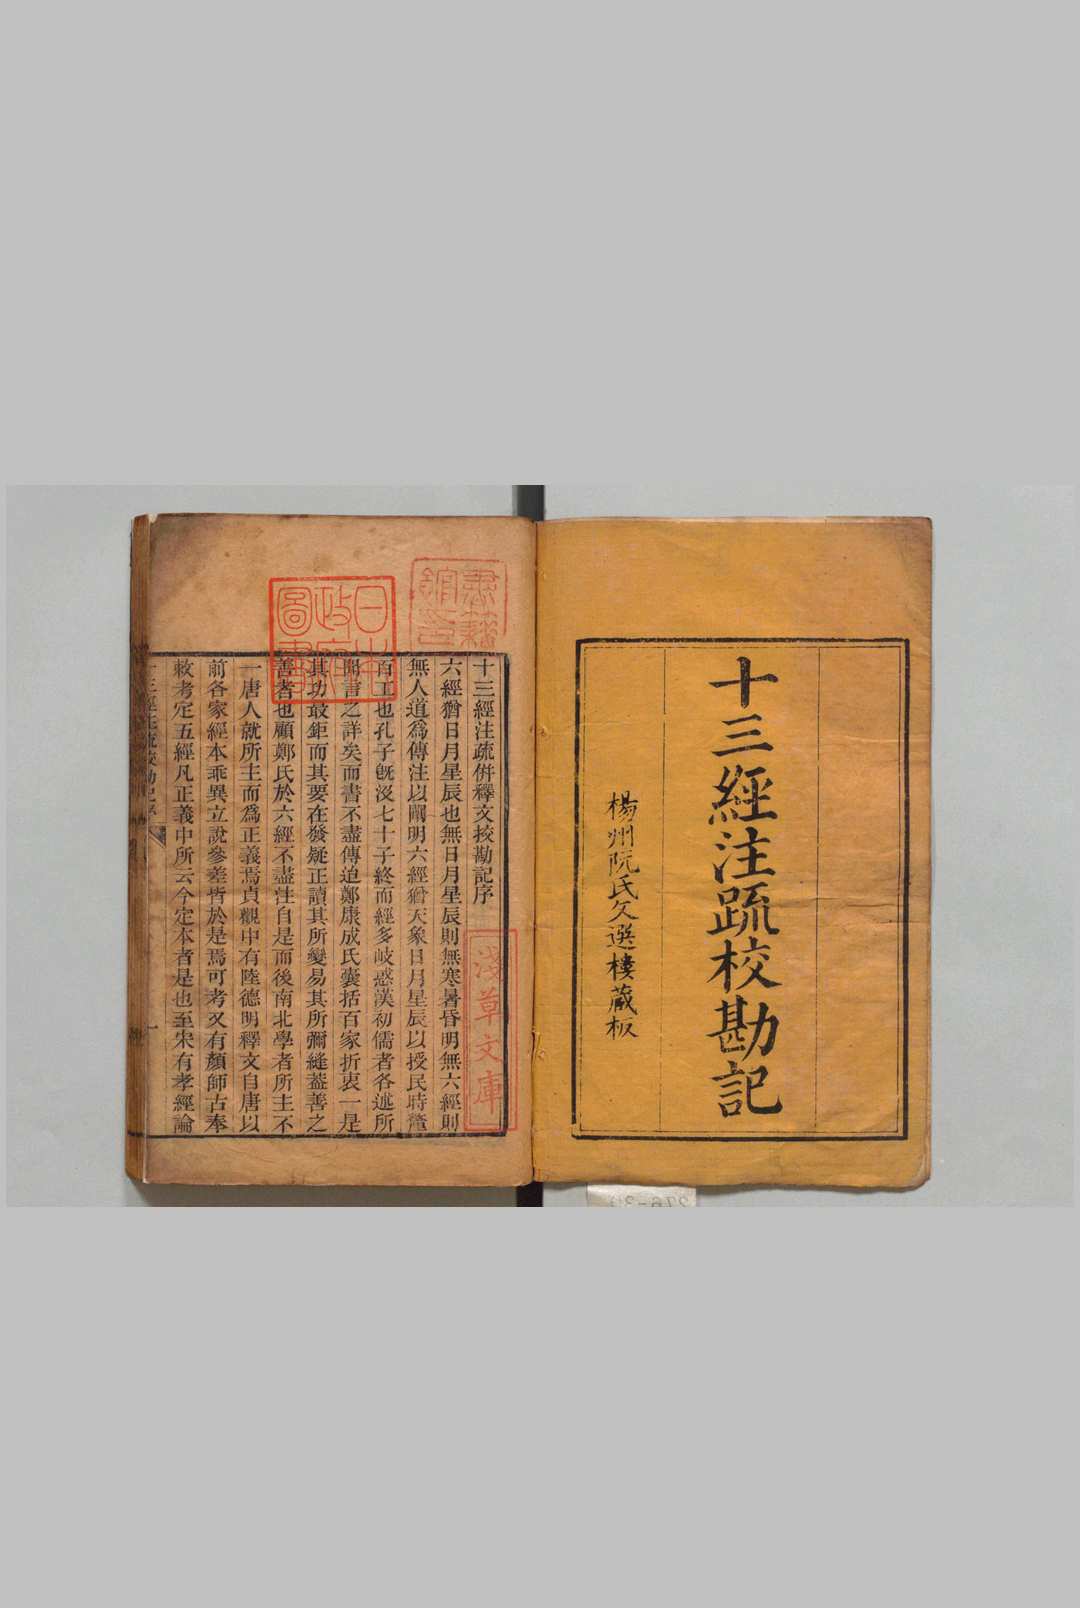 十三經注疏校勘記
揚州阮氏文選樓蔵板
十三經注疏併釋文挍勘記序
六經猶日月星辰也無日月星辰則無寒暑昏明無六經則
無人道爲傳注以闡明六經猶天象日月星辰以授民時釐
百工也孔子旣沒七十子終而經多岐惑漢初儒者各述所
聞書之詳矣而書不盡傳迨鄭康成氏囊括百家折衷一是
其功㝡鉅而其要在發疑正讀其所變易其所彌縫蓋善之
善者也顧鄭氏於六經不盡注自是而後南北學者所主不
一唐人就所主而爲正義焉貞觀中有陸德明釋文自唐以
前各家經本乖異立說參差皆於是焉可考又有顏師古奉
敕考定五經凡正義中所云今定本者是也至宋有孝經論
十三經注疏校勘記序
一
日本政府圖書
淺草文庫